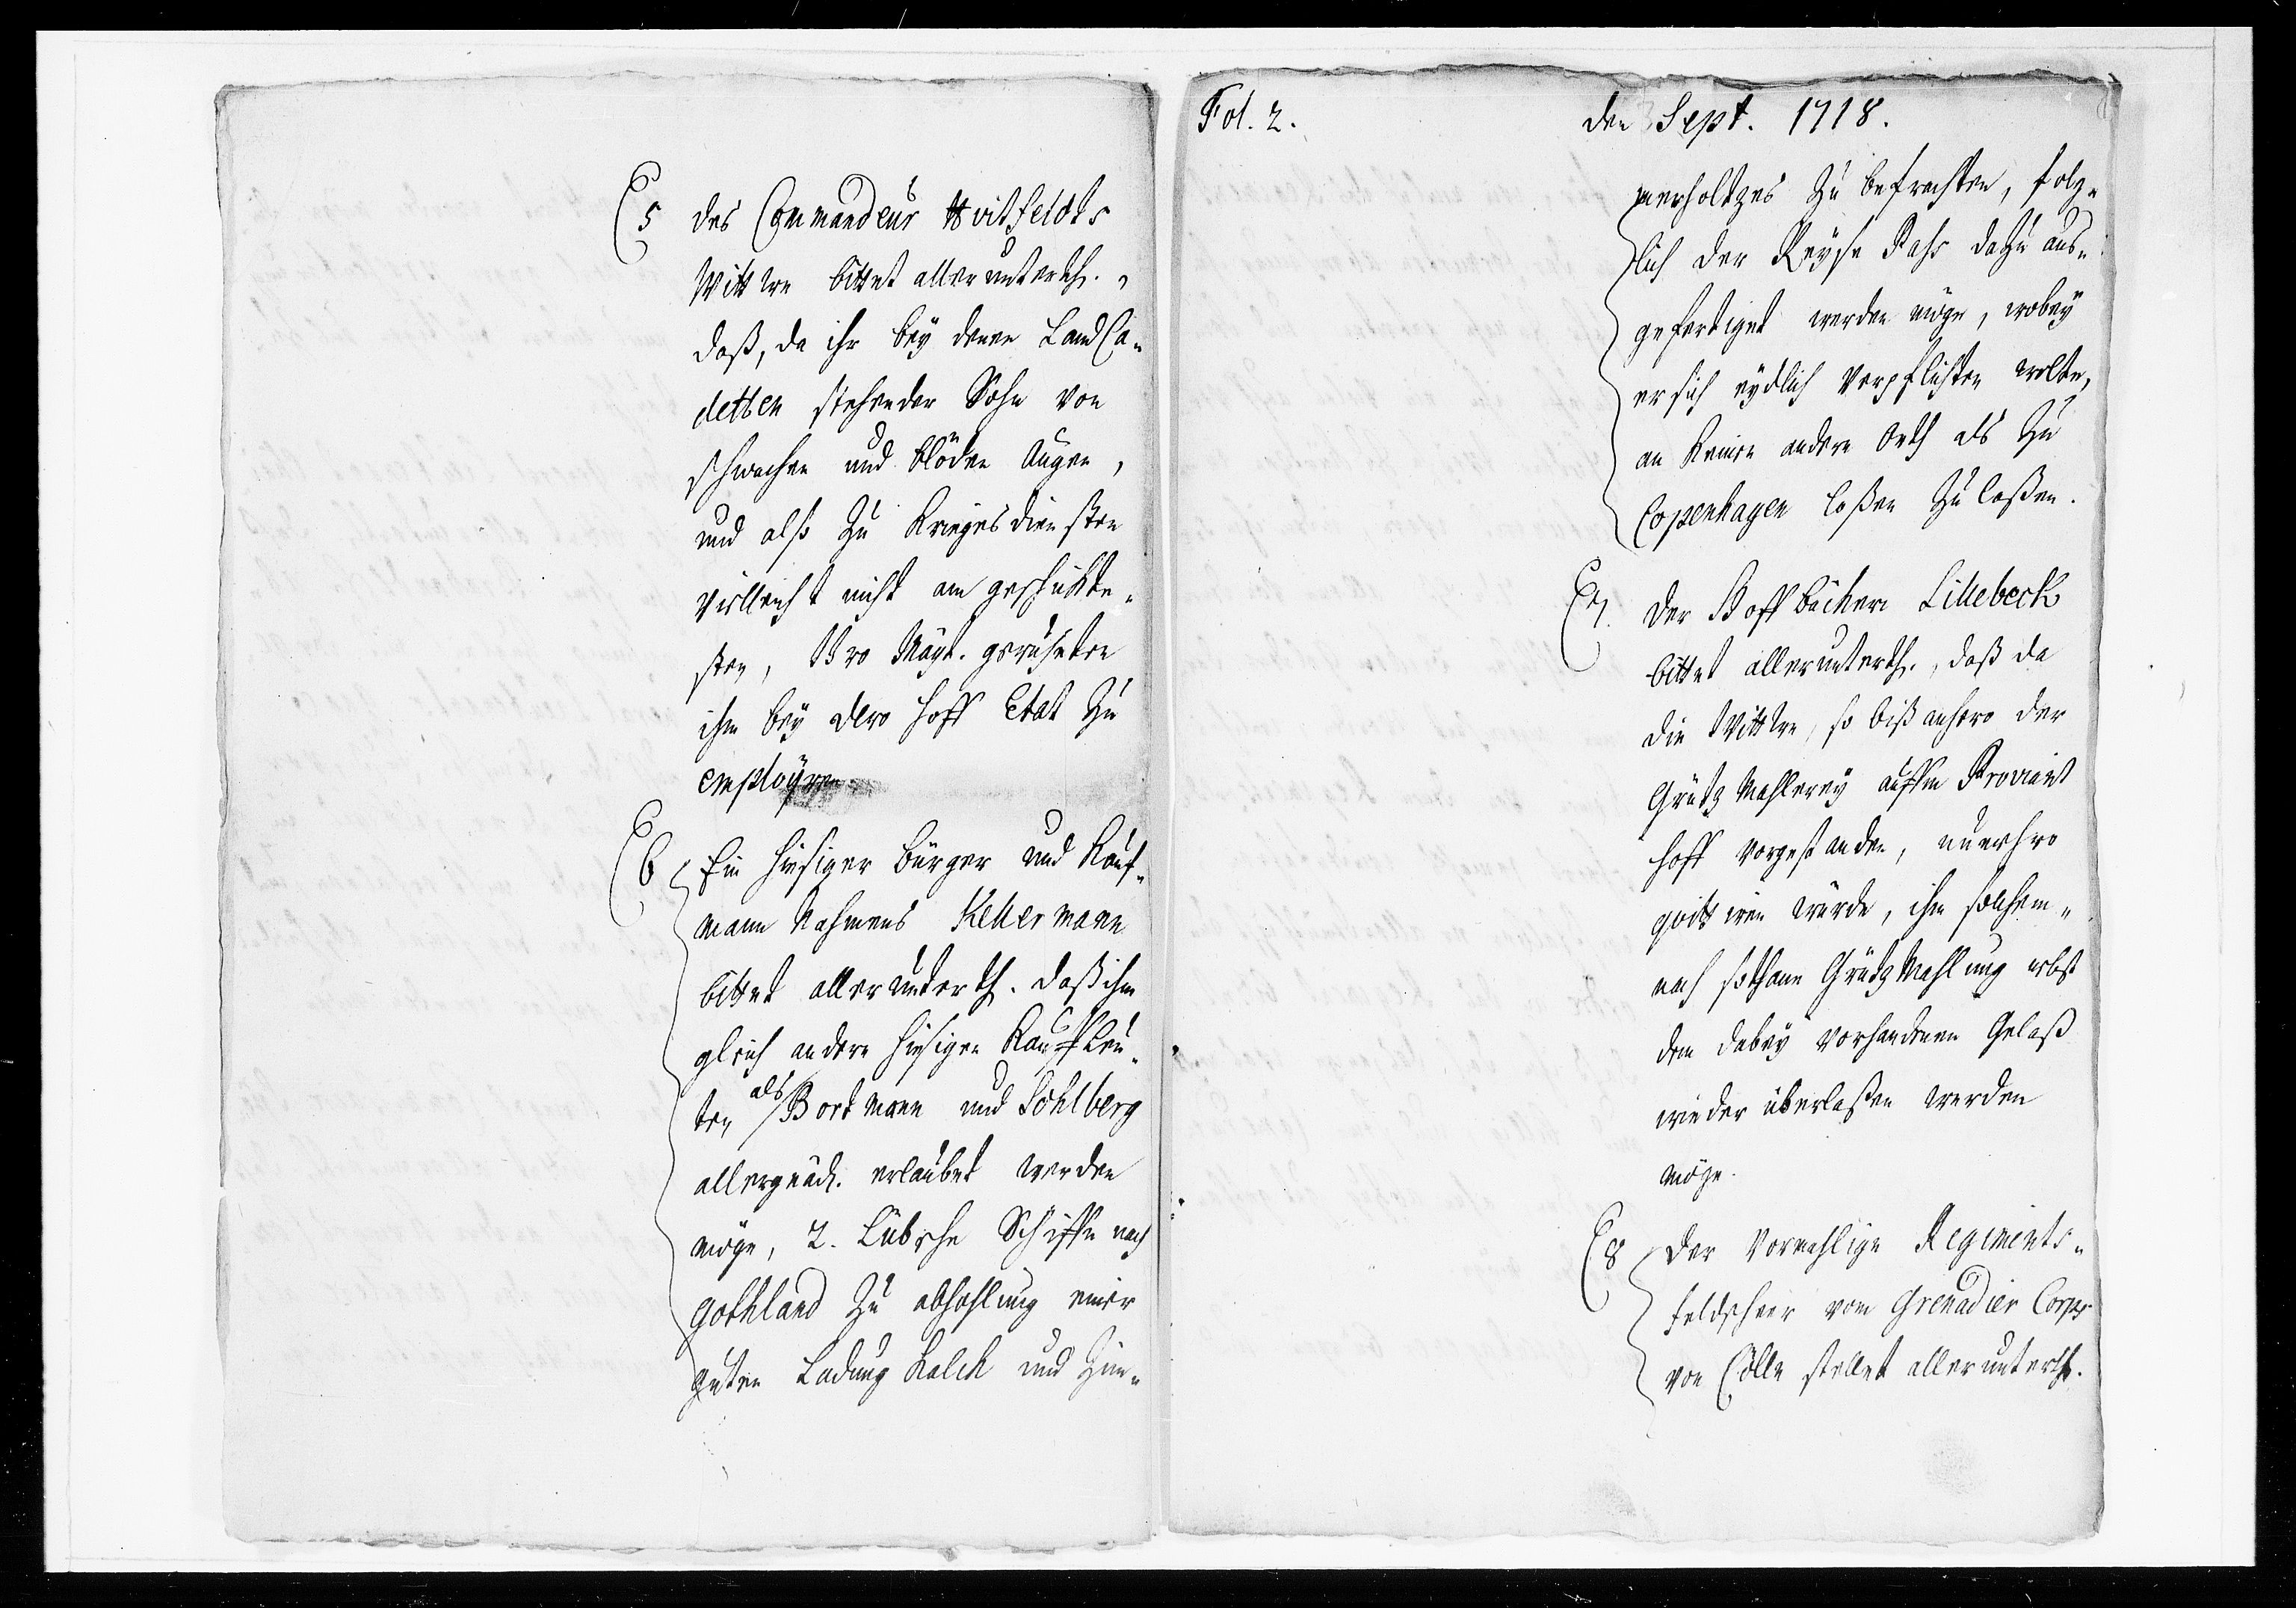 5 des Commandeur Hvitfeldts
Wittwe bittet allerunterth.,
daß, da ihr beÿ denen Land Ca-
detten stehender Sohn von
schwachen und blöden Augen,
und alß zu Krieges diensten
villeicht nicht am geschickte-
sten, Ihro Maÿt. geruheten
ihn beÿ dero Hoff Etat zu
employren.
6 Ein hiesiger Bürger und Kauf-
mann Nahmens Kellermann
bittet allerunterth. daß ihm
gleich andern hiesigen Kauffleu-
ten, als Bortmann und Sohlberg
allergnäd. erlaubet werden
möge, 2. Lübsche Schiffe nach
Gothland zu abhohlung einer
guten Ladung Kalck und Zim-
Fol. 2.
den Sept. 1718.
merholtzes zu befrachten, folg-
lich der Reÿse Pass dazu aus-
gefertiget werden möge, wobeÿ
er sich eÿdlich verpflichten wolte,
an keinen andern Orth als zu
Copenhagen loßen zu laßen.
7. Der Hoff bäcker Lillebeck
bittet allerunterth., daß da
die Wittwe, so biß anhero der
Grütz Mahlereÿ auffm Proviant
hoff vorgestanden, nunehro
qvittiren würde, ihm solchem-
nach sothane Grütz Mahlung nebst
dem dabeÿ vorhandenen Gelaß
wieder überlaßen werden
möge.
8 Der vormahlige Regiments-
feldscheer vom Grenadier Corps
von Cölln stellet allerunterth.